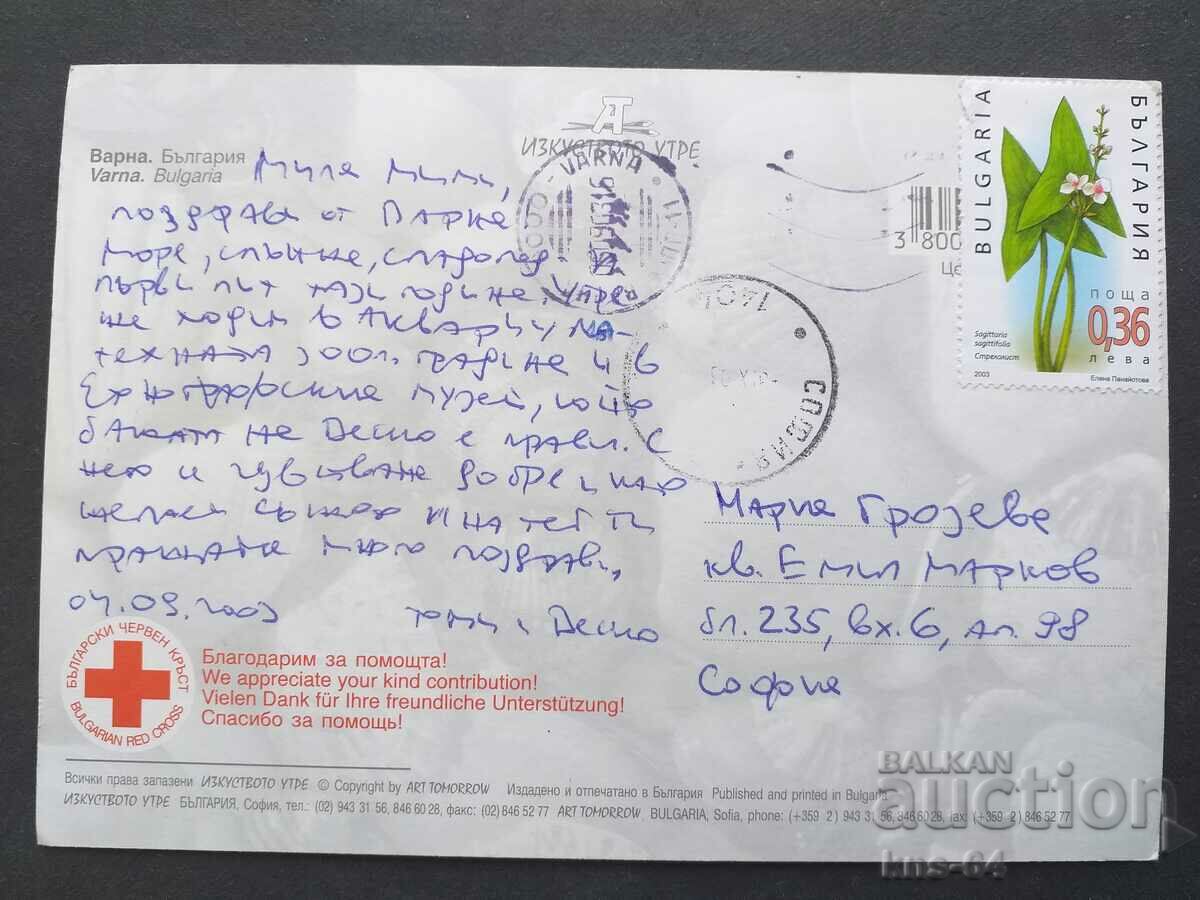 ИЗКУСТВОТО УТРЕ
Варна. България
Varna. Bulgaria
VARNA
СОФИЯ
3 800
BULGARIA
БЪЛГАРИЯ
поща
0,36
лева
Sagittaria
sagittifolia
Стрелолист
2003
Елена Панайотова
Мила Мими,
поздрави от Варна
море, слънце, сладолед и
първи път тази година. Утре
ще ходим в Аквариума
техната зоол. градина и в
музей, който
бащата на Дешо е правил. С
него и чувстваме добре и
желаем също и на теб ти
пращаме много поздрави,
04.09.2003
и Дешо
Мария Грозева
кв. Емил Марков
бл. 235, вх. 6, ап. 98
София
БЪЛГАРСКИ ЧЕРВЕН КРЪСТ
BULGARIAN RED CROSS
Благодарим за помощта!
We appreciate your kind contribution!
Vielen Dank für Ihre freundliche Unterstützung!
Спасибо за помощь!
Всички права запазени ИЗКУСТВОТО УТРЕ © Copyright by ART TOMORROW Издадено и отпечатано в България Published and printed in Bulgaria
ИЗКУСТВОТО УТРЕ БЪЛГАРИЯ, София, тел.: (02) 943 31 56, 846 60 28, факс: (02) 846 52 77 ART TOMORROW BULGARIA, Sofia, phone: (+359 2) 943 31 56, 846 60 28, fax: (+359 2) 846 52 77
BALKAN
auction
kns-64